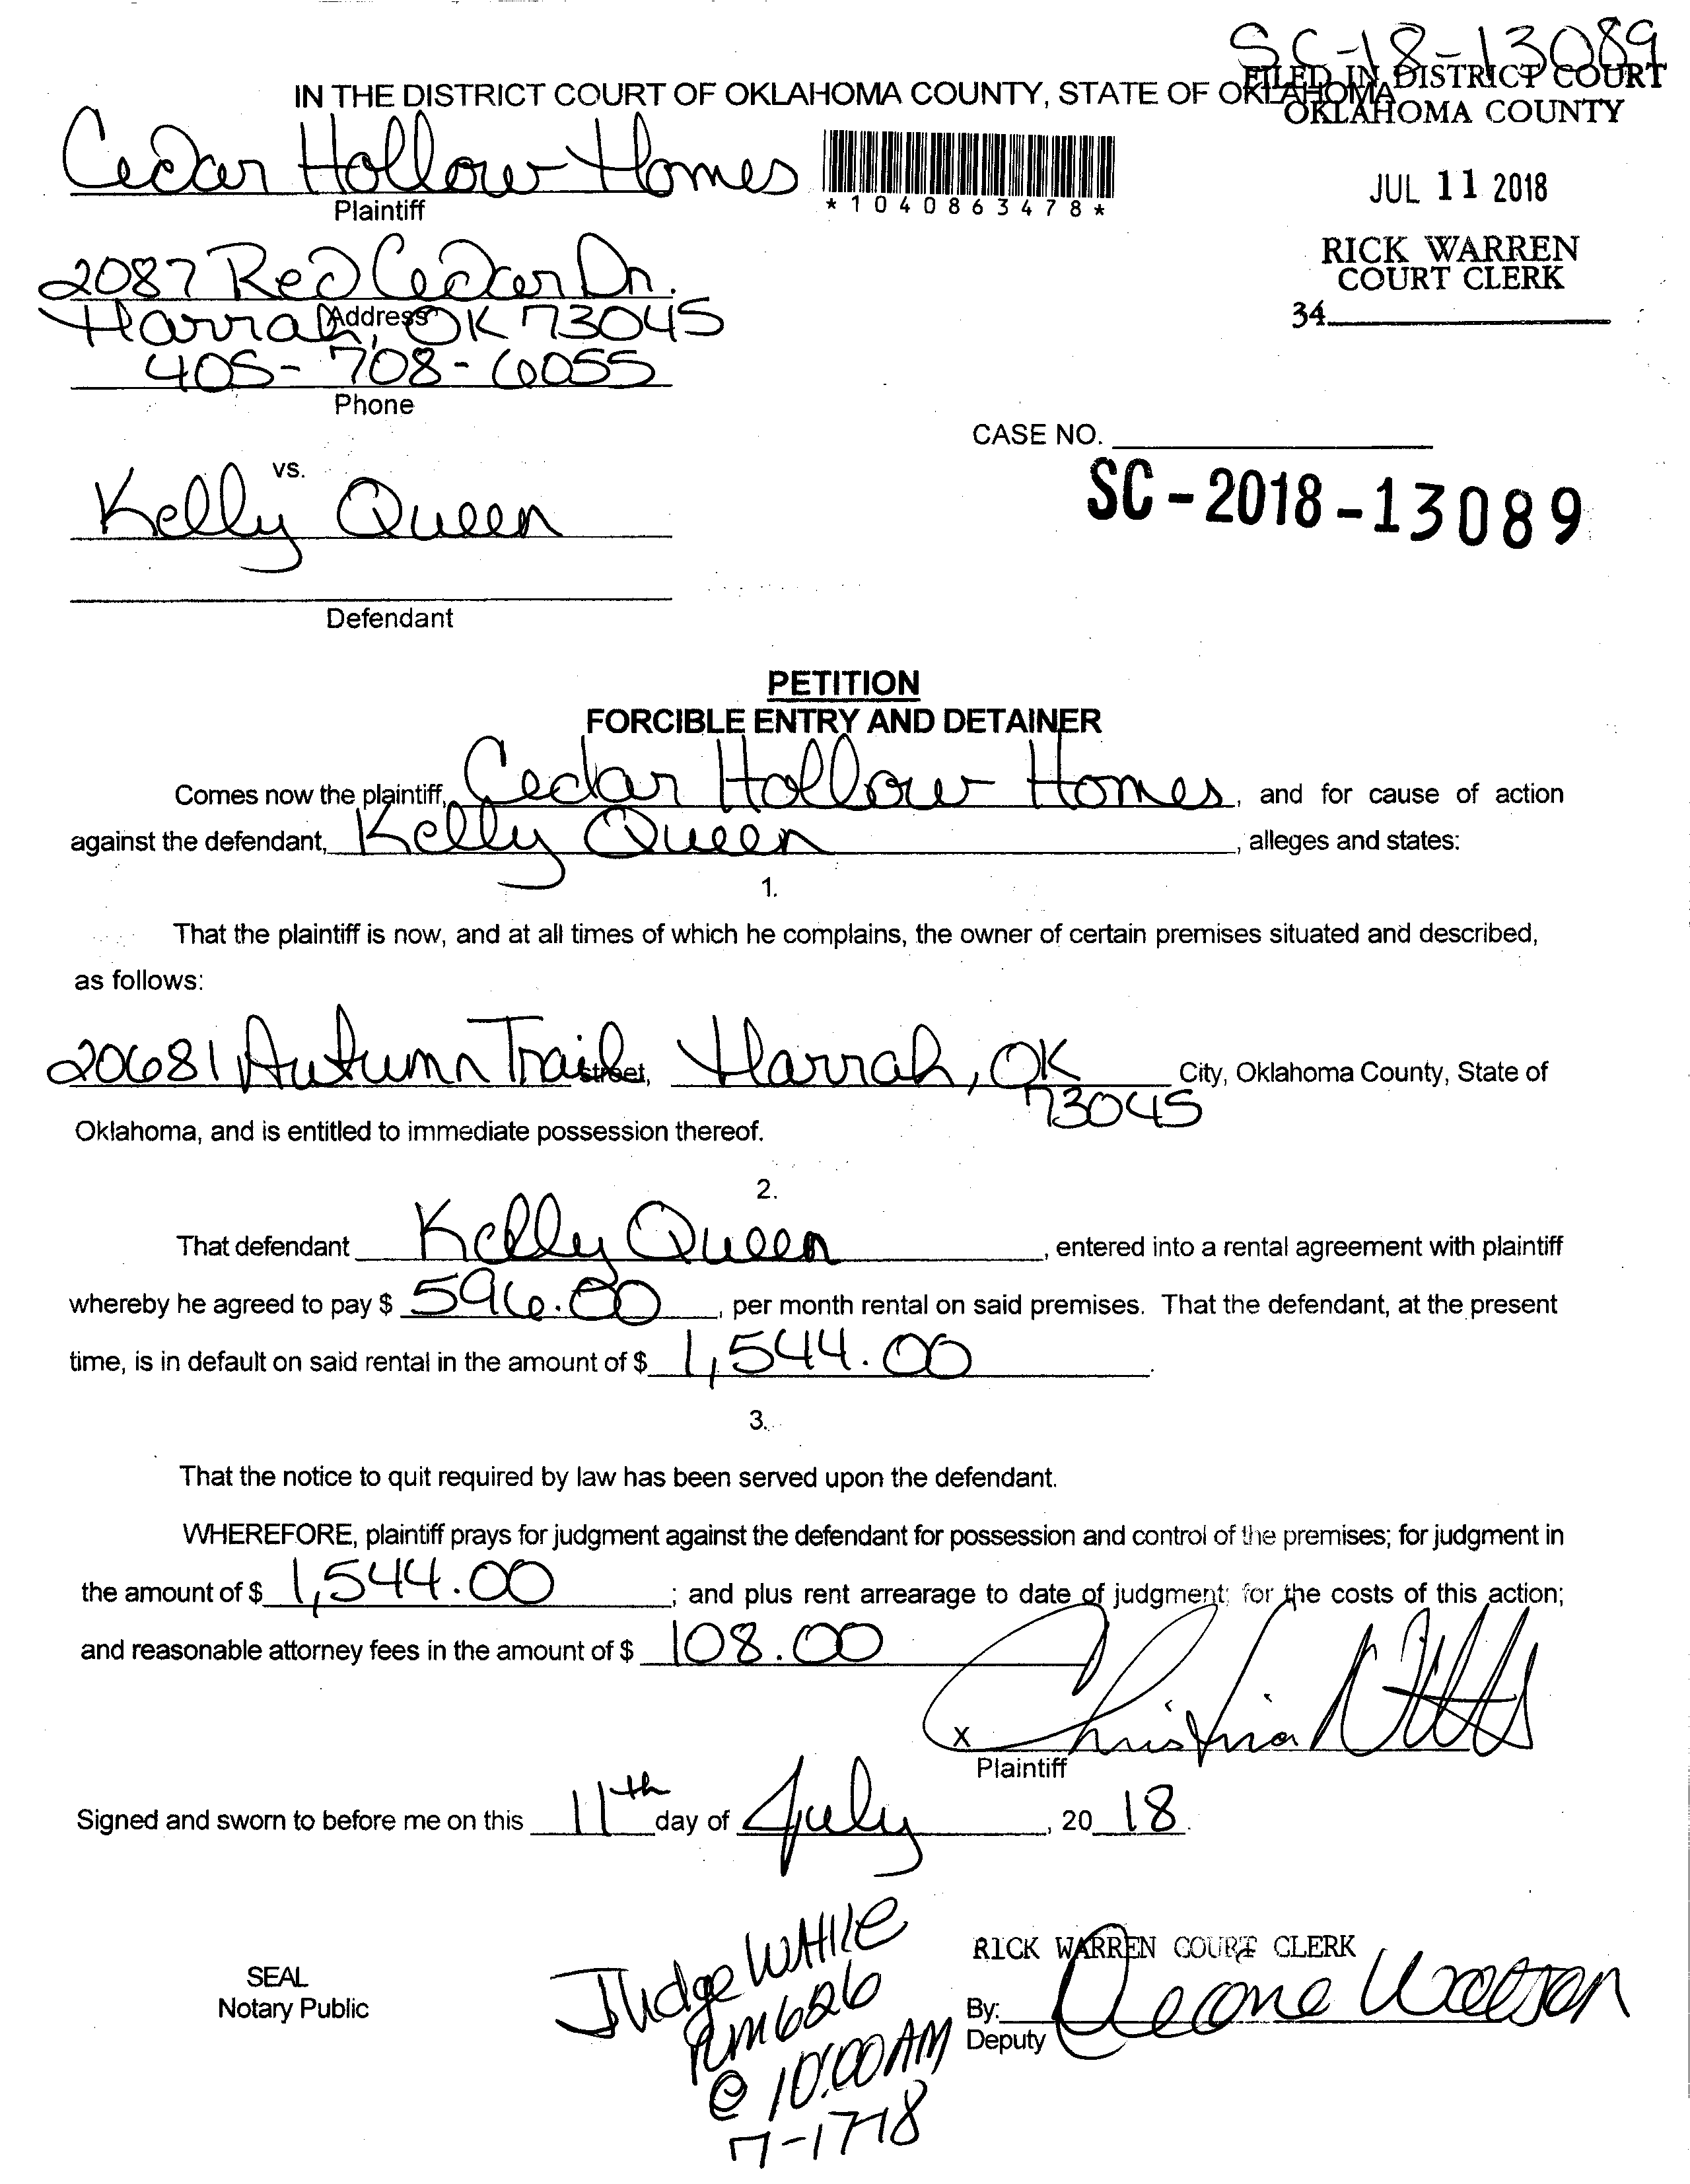 SC-18-13089
IN THE DISTRICT COURT OF OKLAHOMA COUNTY, STATE OF OKLAHOMA
FILED IN DISTRICT COURT
OKLAHOMA COUNTY
Cedar Hollow Homes
Plaintiff
*1040863478*
JUL 11 2018
RICK WARREN
COURT CLERK
34
2087 Red Cedar Dr.
Harrah, OK 73045
Address
405-708-6055
Phone
CASE NO.
SC-2018-13089
vs.
Kelly Queen
Defendant
PETITION
FORCIBLE ENTRY AND DETAINER
Comes now the plaintiff, Cedar Hollow Homes, and for cause of action
against the defendant, Kelly Queen, alleges and states:
1.
That the plaintiff is now, and at all times of which he complains, the owner of certain premises situated and described,
as follows:
20681 Autumn Trail street, Harrah, OK City, Oklahoma County, State of
73045
Oklahoma, and is entitled to immediate possession thereof.
2.
That defendant Kelly Queen, entered into a rental agreement with plaintiff
whereby he agreed to pay $ 596.00, per month rental on said premises. That the defendant, at the present
time, is in default on said rental in the amount of $ 1,544.00.
3.
That the notice to quit required by law has been served upon the defendant.
WHEREFORE, plaintiff prays for judgment against the defendant for possession and control of the premises; for judgment in
the amount of $ 1,544.00; and plus rent arrearage to date of judgment; for the costs of this action;
and reasonable attorney fees in the amount of $ 108.00
x Christina
Plaintiff
Signed and sworn to before me on this 11th day of July, 20 18.
SEAL
Notary Public
Judge WHILE
RM 626
@ 10:00 AM
7-17-18
RICK WARREN COURT CLERK
By: Deone Watson
Deputy